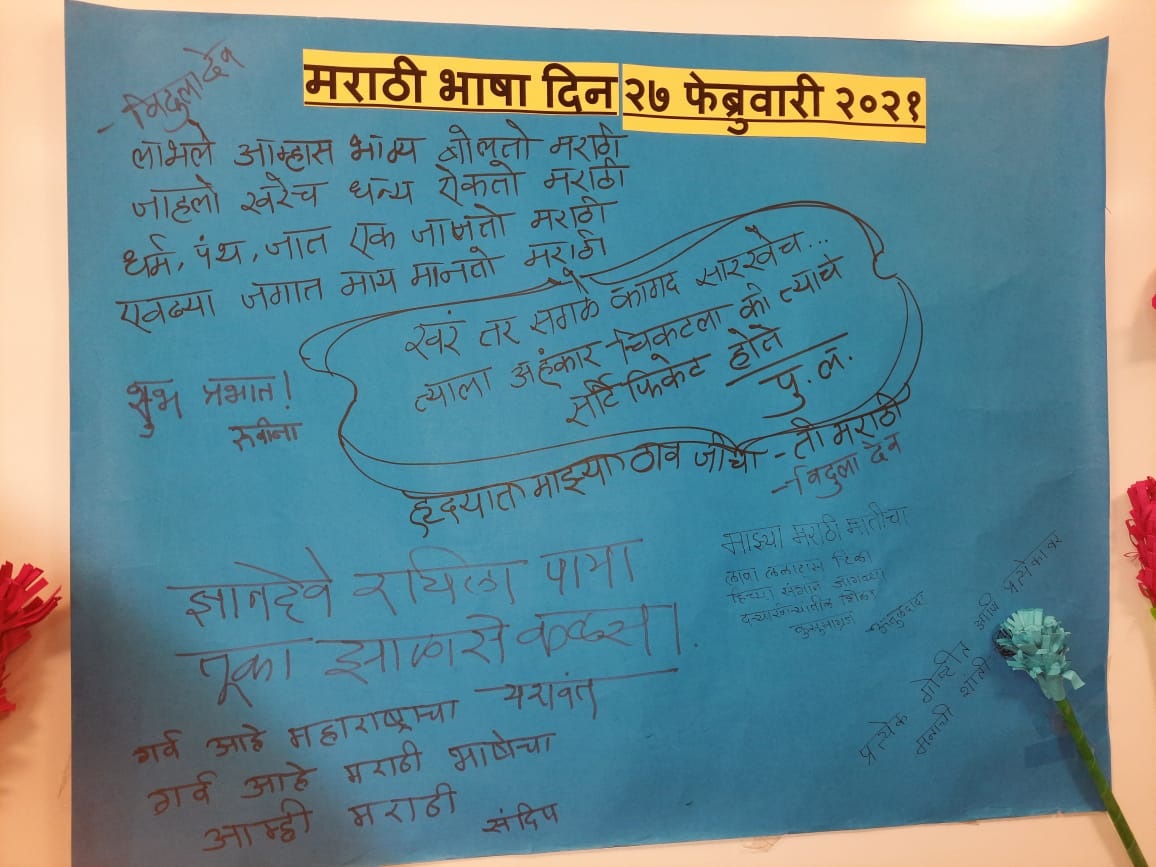 मराठी भाषा दिन २७ फेब्रुवारी २०२१
- मिदुला देव
लाभले आम्हास भाग्य बोलतो मराठी
जाहलो खरेच धन्य ऐकतो मराठी
धर्म, पंथ, जात एक जाणतो मराठी
एवढ्या जगात माय मानतो मराठी
खरं तर सगळे कागद सारखेच...
त्याला अहंकार चिकटला की त्याचे
सर्टिफिकेट होते
पु. ल.
शुभ प्रभात!
रुबीना
हृदयात माझ्या ठाव जीचा - ती मराठी
- विदुला देव
ज्ञानदेवे रचिला पाया
तूका झालासे कळस।
यशवंत
माझ्या मराठी मातीचा
लावा ललाटास टिळा
हिच्या संगाने जागल्या
दऱ्याखोऱ्यांतील शिळा
कुसुमाग्रज
गर्व आहे महाराष्ट्राचा
गर्व आहे मराठी भाषेचा
आम्ही मराठी
संदिप
प्रत्येक गोष्टीत आणि प्रत्येकावर
मनाची शांती